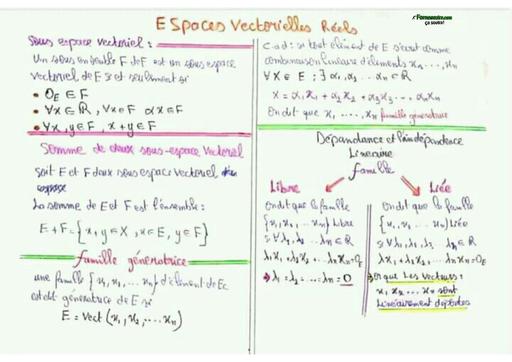 ESpaces Vectorielles Réels
Fomesoutra.com
ça soutra!
Sous espace vectoriel :
Un sous ensemble F de F est un sous espace
vectoriel de E si et seulement si
• 0E ∈ F
• ∀α ∈ ℝ, ∀x ∈ F αx ∈ F
• ∀x, y ∈ F, x+y ∈ F
Somme de deux sous-espace Vectoriel
Soit E et F deux sous espace vectoriel d'un
espace
La somme de E et F est l'ensemble :
E+F = { x, y ∈ X, x ∈ E, y ∈ F }
famille génératrice
une famille { x1, x2, ... xn } d'élément de E
est dit generatrice de E si
E = Vect (x1, x2, ... xn)
c.a.d : si tout élément de E s'écrit comme
combinaison linéaire d'éléments x1, ..., xn
∀x ∈ E : ∃ α1, α2 ... αn ∈ ℝ
x = α1x1 + α2x2 + α3x3 ... αnxn
On dit que x1, ..., xn famille génératrice
Dépendance et l'indépendence
Lineaire
famille
Libre
On dit que la famille
{x1, x2, ... xn} libre
si ∀λ1, λ2 ... λn ∈ ℝ
λ1x1 + λ2x2 + ... λnxn = 0E
⇒ λ1 = λ2 = ... = λn = 0
Liée
on dit que la famille
{x1, x2 ... xn} Liée
si ∀λ1, λ2, λ3 ∈ ℝ
λx1 + λ2x2 .. λnxn = 0E
que Les Vecteurs :
x1, x2 ... xn sont
Linéairement dépendes